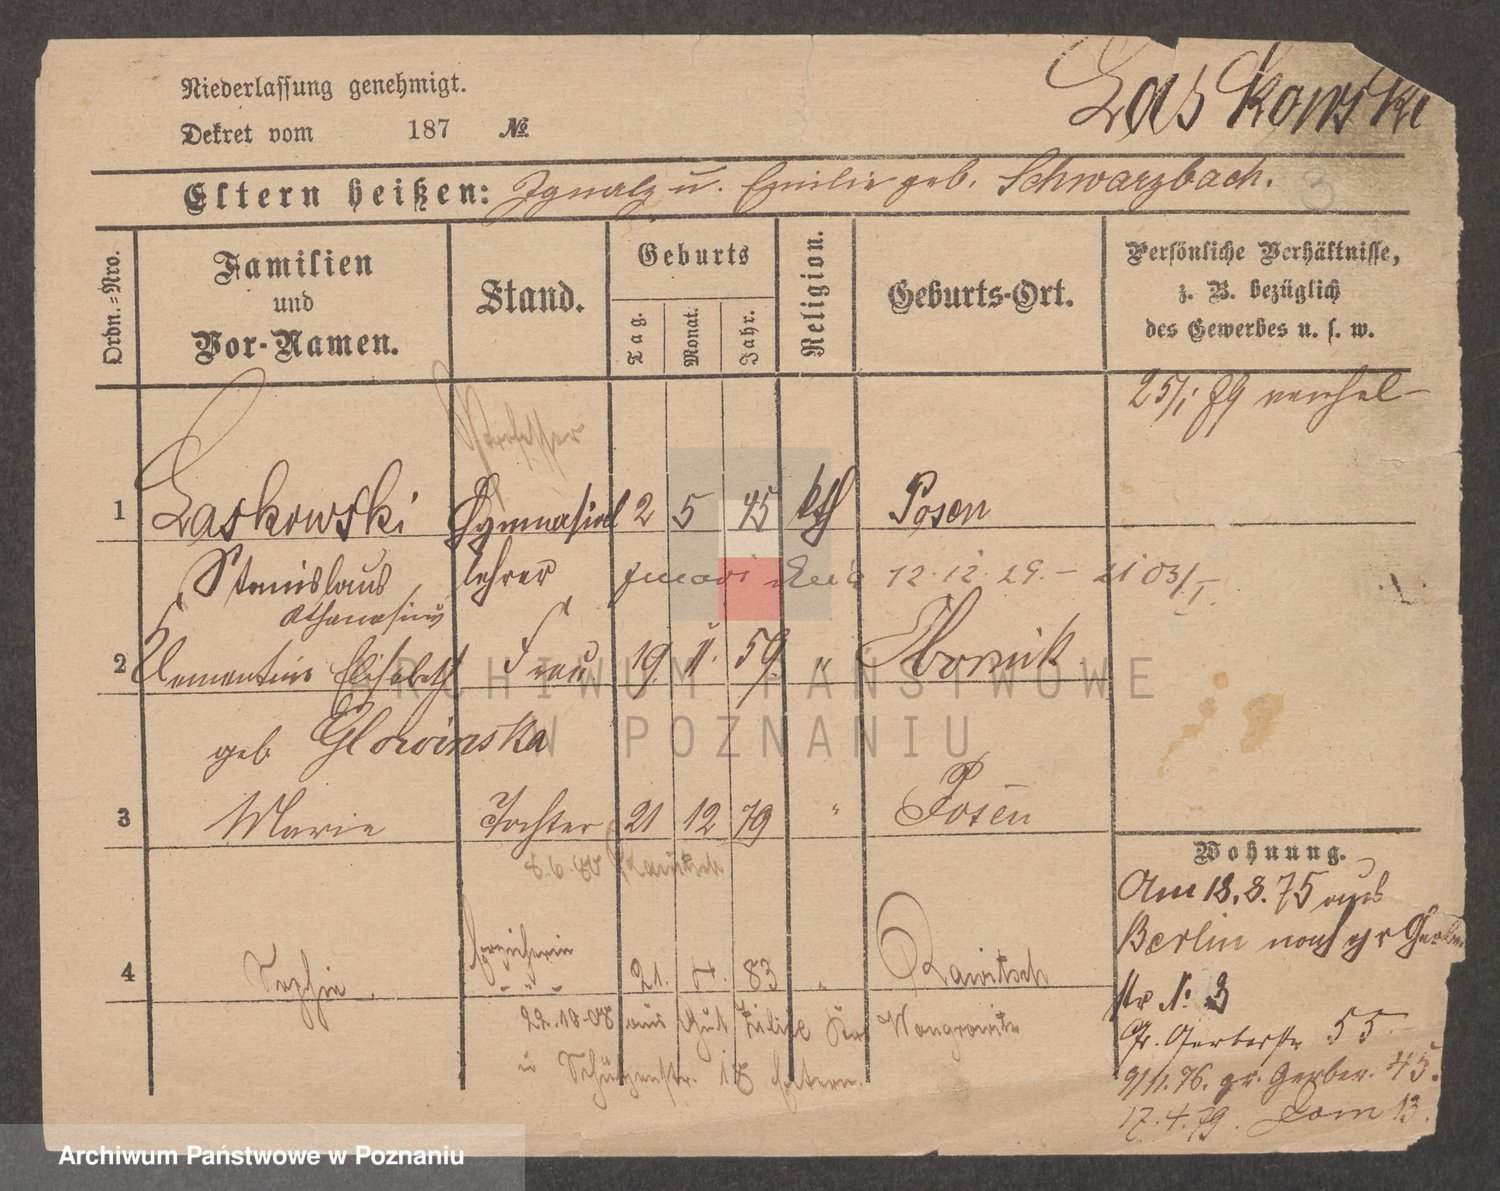 Niederlassung genehmigt.
Laskowski
Dekret vom 187 №
Eltern heißen: Ignatz u. Emilie geb. Schwarzbach.
Ordn.-Nro.
Familien und Vor-Namen.
Stand.
Geburts
Tag.
Monat.
Jahr.
Religion.
Geburts-Ort.
Persönliche Verhältnisse,
z. B. bezüglich
des Gewerbes u. s. w.
25/1 79
Professor
1 Laskowski Gymnasial 2 5 45 kth Posen
Stanislaus lehrer 12.12.29.
Athanasius
2 Clementine Elisabeth Frau 19. 11. 59. " Obornik
geb Glowinska
3 Marie Tochter 21 12 79 " Posen
8.6.80 Rawitsch
4 Sophie. Erzieherin 21. 4. 83 " Rawitsch
22.10.08 aus Gut Wongrowitz
u Schützenstr. 18 Eltern.
Wohnung.
Am 18.8.75 aus
Berlin nach gr Gerber
str № 3
Gr. Gerberstr 55
9/11.76. gr. Gerber. 45.
17.4.79. Dom 13.
ARCHIWUM PAŃSTWOWE
W POZNANIU
Archiwum Państwowe w Poznaniu